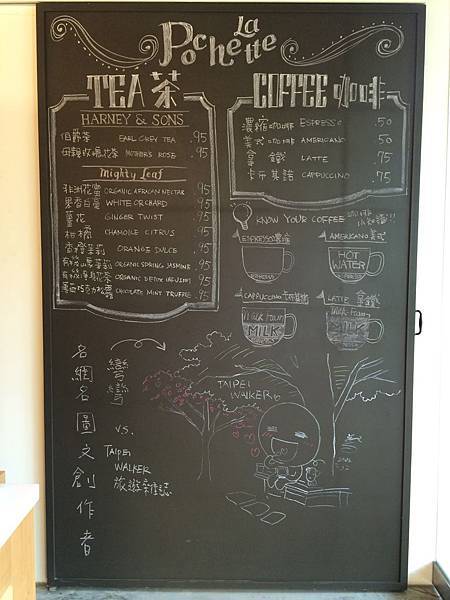 La
Pochette
TEA 茶
HARNEY & SONS
伯爵茶 EARL GREY TEA .95
母親玫瑰花茶 MOTHER'S ROSE .95
Mighty Leaf
非洲花蜜 ORGANIC AFRICAN NECTAR .95
果香白毫 WHITE ORCHARD .95
薑花 GINGER TWIST .95
柑橘 CHAMOILE CITRUS .95
香橙茉莉 ORANGE DULCE .95
ORGANIC SPRING JASMINE .95
ORGANIC DETOX INFUSION .95
CHOCOLATE MINT TRUFFLE .95
COFFEE 咖啡
濃縮咖啡 ESPRESSO .50
美式咖啡 AMERICANO .50
拿鐵 LATTE .75
卡布其諾 CAPPUCCINO .75
KNOW YOUR COFFEE 咖啡
ESPRESSO 濃縮
ESPRESSO
AMERICANO 美式
HOT
WATER
ESPRESSO
CAPPUCCINO
Milk Foam
MILK
ESPRESSO
LATTE 拿鐵
Milk Foam
MILK
ESPRESSO
名網名圖文創作者
彎彎
vs.
TAIPEI
WALKER
旅遊雜誌
TAIPEI
WALKER